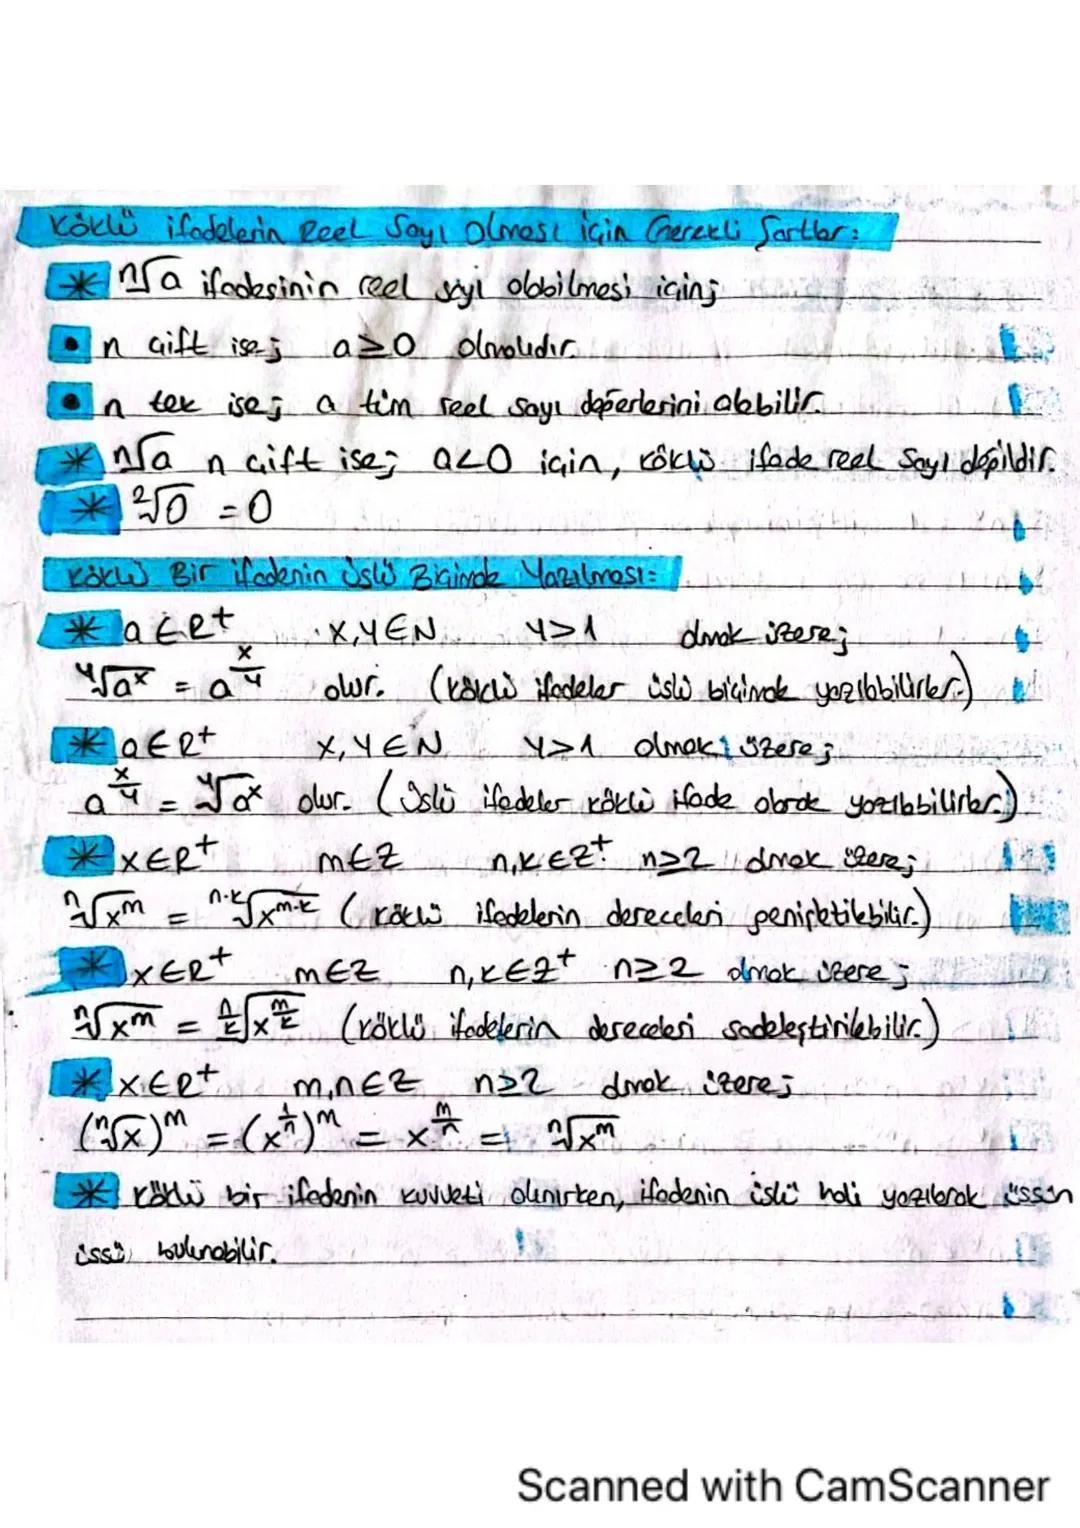 Köklü ifadelerin Reel Sayı Olması için Gerekli Şartlar:
* ⁿ√a ifadesinin reel sayı olabilmesi için;
• n çift ise; a≥0 olmalıdır.
• n tek ise; a tüm reel sayı değerlerini alabilir.
* ⁿ√a n çift ise; a<0 için, köklü ifade reel sayı değildir.
* ²√0 = 0
Köklü Bir ifadenin üslü Biçimde Yazılması:
* a∈R⁺ x,y∈N y>1 olmak üzere;
ʸ√aˣ = a^(x/y) olur. (köklü ifadeler üslü biçimde yazılabilirler.)
* a∈R⁺ x,y∈N y>1 olmak üzere;
a^(x/y) = ʸ√aˣ olur. (üslü ifadeler köklü ifade olarak yazılabilirler.)
* x∈R⁺ m∈Z n,k∈Z⁺ n≥2 olmak üzere;
ⁿ√xᵐ = ⁿ·ᵏ√xᵐ·ᵏ (köklü ifadelerin dereceleri genişletilebilir.)
* x∈R⁺ m∈Z n,k∈Z⁺ n≥2 olmak üzere;
ⁿ√xᵐ = ^(n/k)√x^(m/k) (köklü ifadelerin dereceleri sadeleştirilebilir.)
* x∈R⁺ m,n∈Z n≥2 olmak üzere;
(ⁿ√x)ᵐ = (x^(1/n))ᵐ = x^(m/n) = ⁿ√xᵐ
* köklü bir ifadenin kuvveti alınırken, ifadenin üslü hali yazılarak üssün
üssü bulunabilir.
Scanned with CamScanner